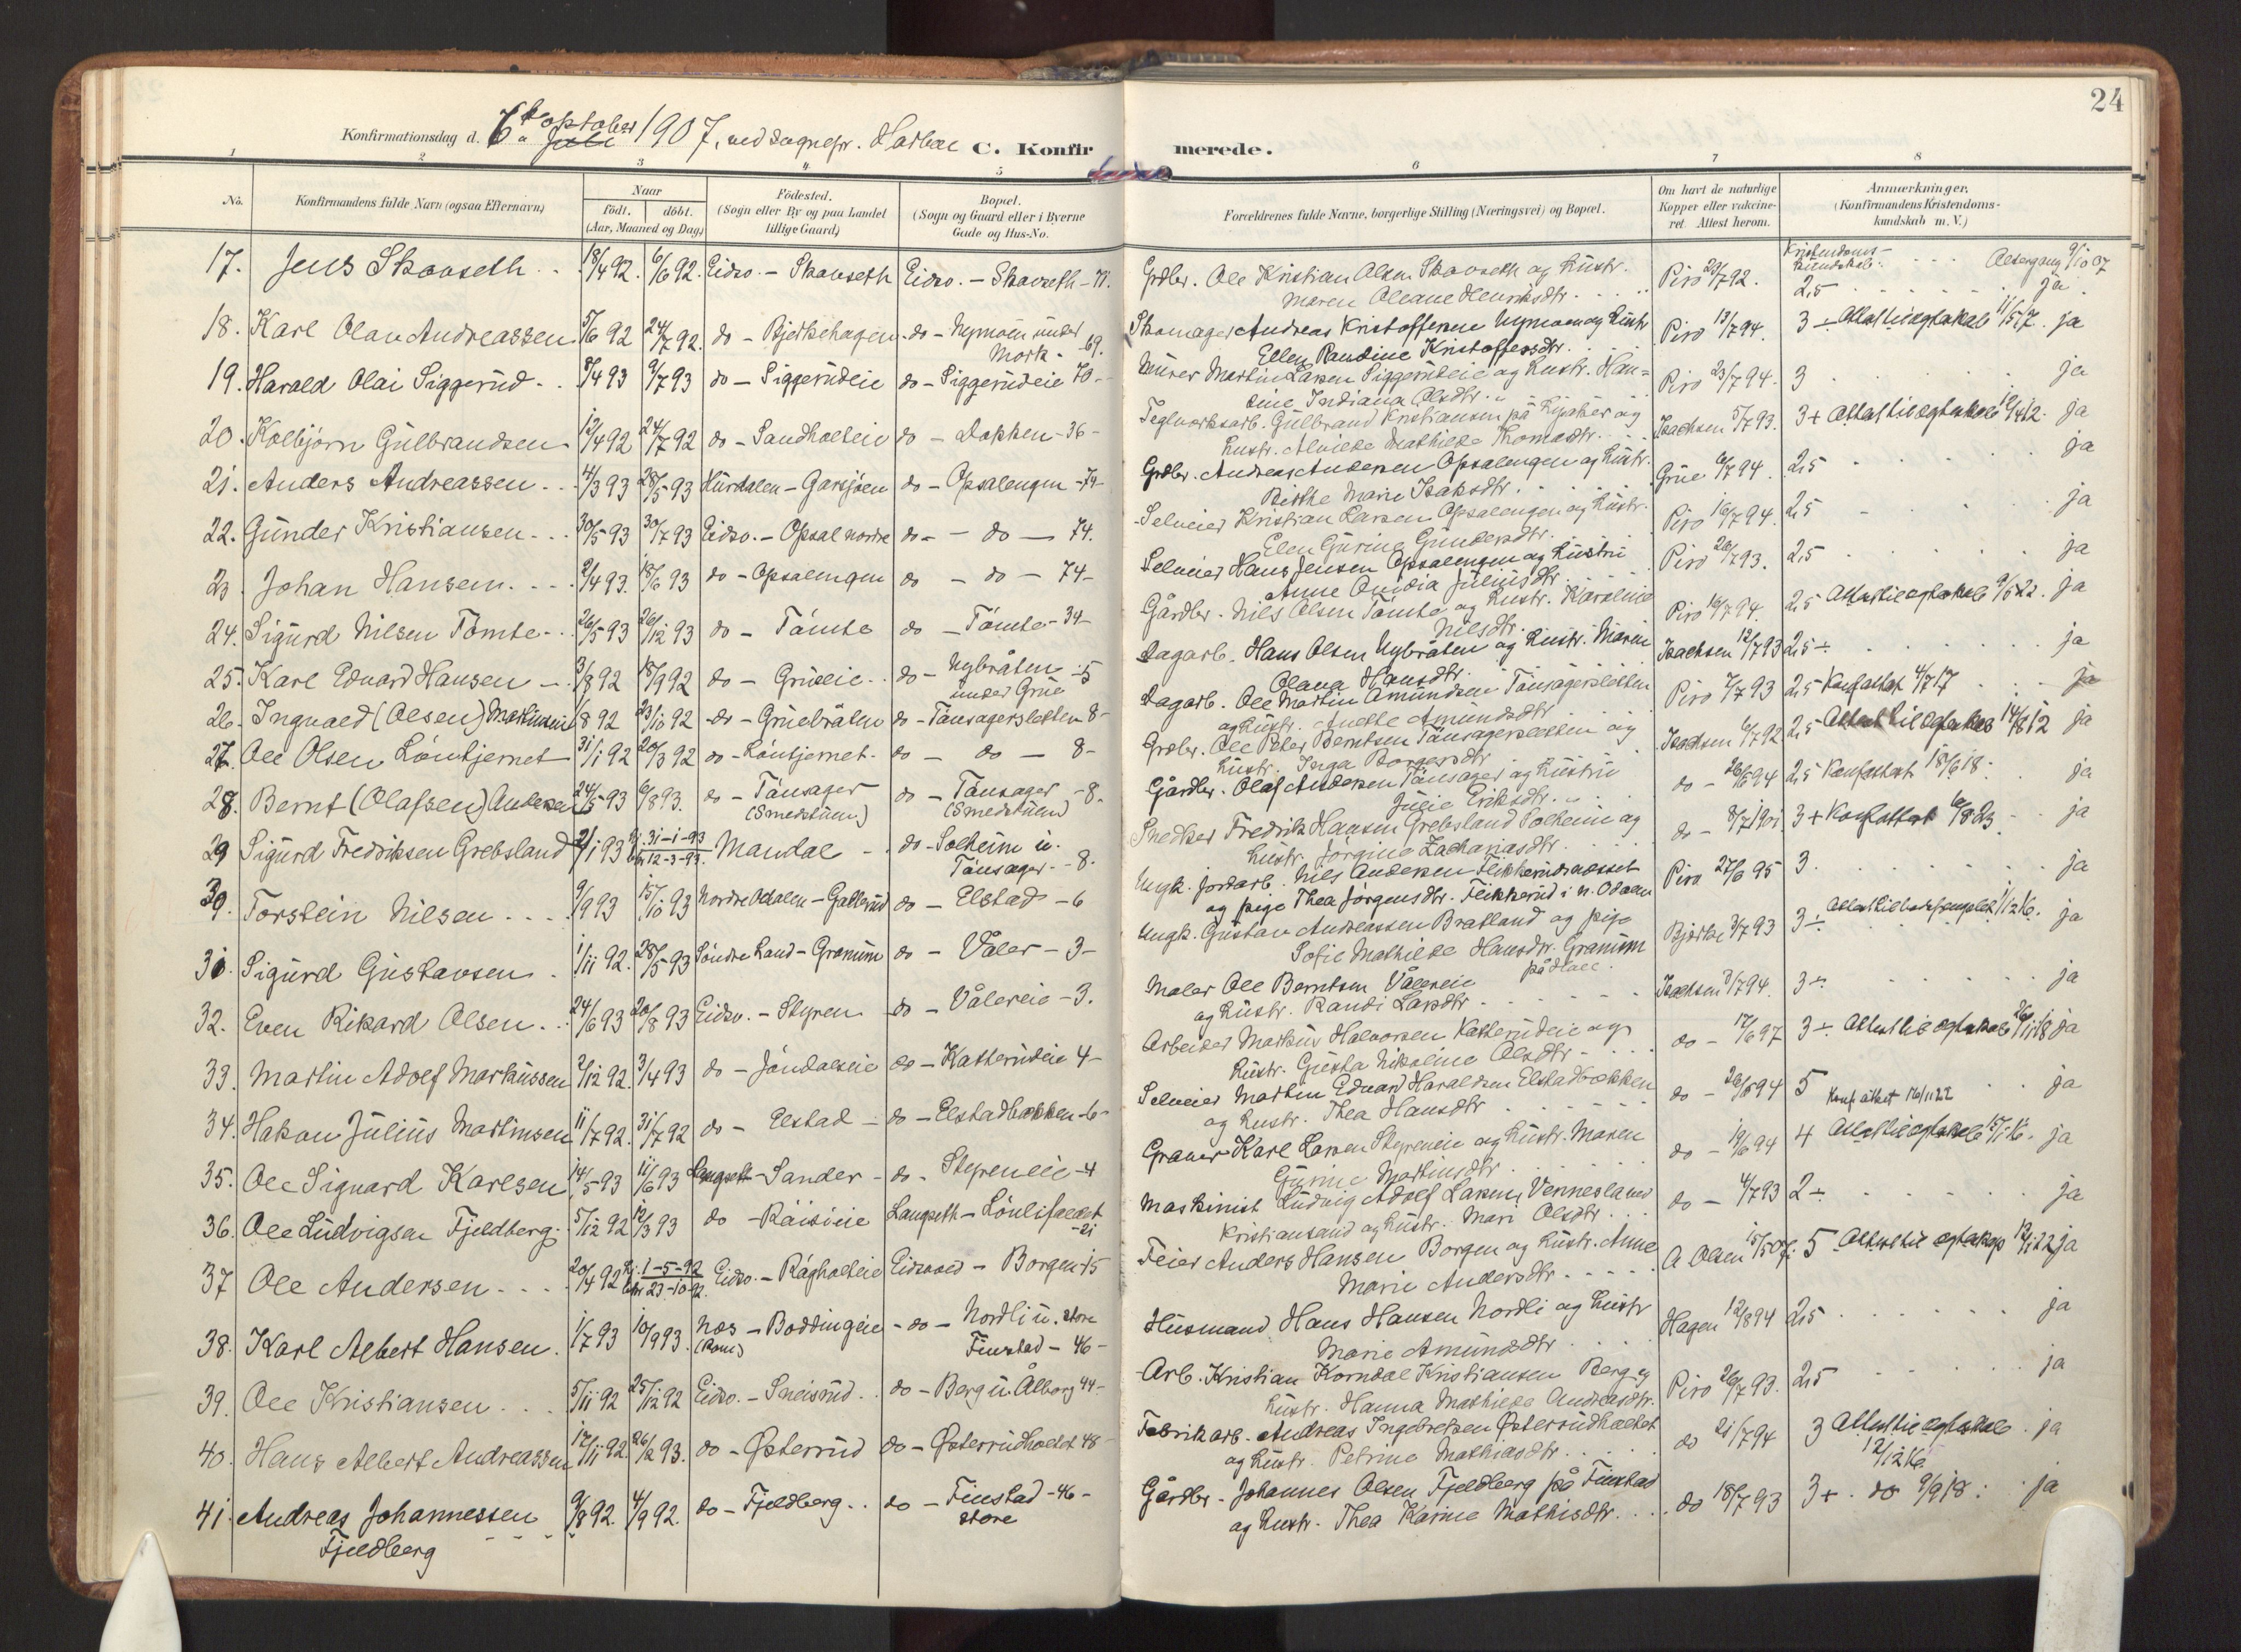 24
Konfirmationsdag d. 6te oktober 1907, ved sognepr. Harboe C. Konfirmerede.
1 2 3 4 5 6 7 8
No.
Konfirmandens fulde Navn (ogsaa Efternavn)
Naar
födt. döbt.
(Aar, Maaned og Dag)
Födested.
(Sogn eller By og paa Landet
tillige Gaard)
Bopæl.
(Sogn og Gaard eller i Byerne
Gade og Hus-No.
Forældrenes fulde Navne, borgerlige Stilling (Næringsvei) og Bopæl.
Om havt de naturlige
Kopper eller vaccine-
ret Attest herom.
Anmærkninger.
(Konfirmandens Kristendoms-
kundskab m. V.)
Kristendoms-
kundskab. Altergang 9/10 07
17. Jens Skauseth 18/4 92. 6/6 92. Eidsv. - Skauseth Eidsv. - Skauseth - 71. Grdbr. Ole Kristian Olsen Skauseth og Hustr. Piro 29/7 92. 2,5 ja
Maren Oleane Henriksdtr.
18. Karl Olav Andreassen 5/6 92 24/7 92. do - Bjerkehagen do - Nymoen under Skomager Andreas Kristoffersen Nymoen og Hustr Piro 13/7 94. 3 ÷ Attest til egteskab 11/5 17. ja
Mork - 69. Ellen Pauline Kristoffersdtr.
19. Harald Olai Siggerud 8/4 93 9/7 93 do - Siggerudeie do - Siggerudeie 70 - Murer Martin Larsen Siggerudeie og Hustr. Han- Piro 23/7 94. 3 ja
sine Indiana Olsdtr.
20. Kolbjørn Gulbrandsen 12/4 92 24/7 92 do - Sandholteie do - Dokken - 36 - Teglverksarb. Gulbrand Kristiansen på og Isachsen 5/7 93. 3+ Attest til egteskab 12/4 12. ja
Hustr. Alvilde Mathilde Thomasdtr.
21. Anders Andreassen 4/3 93 28/5 93 Hurdalen - Garsjøen do - Opsalengen - 74 - Grdbr. Andreas Andersen Opsalengen og Hustr. Grue 6/7 94. 2,5 ja
Birthe Marie Isaksdtr.
22. Gunder Kristiansen 30/5 93 30/7 93 Eidsv. - Opsal nordre do - - do - 74. Selveier Kristian Larsen Opsalengen og Hustr. Piro 16/7 94. 2,5 ja
Elen Gurine Gundersdtr.
23. Johan Hansen 2/4 93. 18/6 93 do - Opsalengen do - do - 74 - Selveier Hans Jensen Opsalengen og Hustru Piro 26/7 93. 2,5 ja
Anne Ovidia Juliusdtr.
24. Sigurd Nilsen Tömte 26/5 93 26/12 93 do - Tömte do - Tömte - 34 - Gårdbr. Nils Olsen Tömte og Hustr. Karoline Piro 16/7 94. 2,5 Attest til egteskab 9/5 22. ja
Nilsdtr.
25. Karl Edvard Hansen 3/8 92 18/9 92 do - Grueeie do - Nybråten - 5 Dagarb. Hans Olsen Nybråten og Hustr. Maren Isachsen 12/7 93 2,5 ÷ ja
under Grue Olava Hansdtr.
26. Ingvald (Olsen) Martinsen /8 92 23/10 92 do - Gruebråten do - Tönsagersletten 8 - Dagarb. Ole Martin Amundsen Tönsagersletten Piro 7/7 93 2,5 Konfattest 4/7 17 ja
og Hustr. Anethe Amundsdtr.
27. Ole Olsen Löntjernet 31/1 92 20/3 92 do - Löntjernet do - do - 8 - Grdbr. Ole Peter Berntsen Tönsagersletten og Isachsen 6/7 92 2,5 Attest til egteskab 14/8 12 ja
Hustr. Inga Borgersdtr.
28. Bernt (Olafsen) Andersen 24/5 93 6/8 93. do - Tönsager do - Tönsager - 8 - Gårdbr. Olaf Andersen Tönsager og Hustru do - 26/6 94 2,5 Konfattest 18/6 18. ja
(Smedstuen) (Smedstuen) Julie Eriksdtr.
29 Sigurd Fredriksen Grebsland 2/1 93 31-1-93 Mandal do - Solheim u. Snedker Fredrik Hansen Grebsland Solheim og do - 8/7 1901 3+ Konfattest 16/8 23. ja
12-3-93. Tönsager - 8. Hustr. Jörgine Zachariasdtr.
30. Torstein Nilsen 9/9 93 15/10 93 Nordre Odalen - Galterud do - Elstad - 6 Ungk. jordarb. Nils Andersen Flikkerudnesset Piro 27/6 95 3. ja
og pige Thea Jörgensdtr. Flikkerud i n. Odalen
31. Sigurd Gustavsen 1/11 92. 28/5 93 Söndre Land - Granum do - Våler - 3 - Ungk. Gustav Andreassen Bratland og pige Bjørke 3/7 93 3 ÷ ja
Sofie Mathilde Hansdtr. Granum
32. Even Rikard Olsen 24/6 93 20/8 93 Eidsv. - Styren do - Välereie - 3. Maler Ole Berntsen Vålereie Isachsen 3/7 94. 3 ÷ ja
og Hustr. Randi Larsdtr.
33. Martin Adolf Markussen 2/12 92 3/4 93 do - Jöndalseie do - Katterudeie 4 - Arbeider Markus Halvorsen Katterudeie og do - 17/6 97 3 ÷ Attest til egteskab 26/11 18 ja
Hustr. Gusta Nikoline Olsdtr.
34. Hakon Julius Martinsen 11/7 92. 31/7 92 do - Elstad do - Elstadbakken - 6 - Selveier Martin Edvard Haraldsen Elstadbakken do - 26/6 94 5 Konf. attest 16/11 22 ja
og Hustr. Thea Hansdtr
35. Ole Sigvard Karlsen 14/5 93 11/6 93 Langseth - Sander do - Styreneie - 4 Graver Karl Larsen Styreneie og Hustr. Maren do - 19/6 94 4 Attest til egteskab 15/1 16. ja
Gurine Martinsdtr.
36. Ole Ludvigsen Fjeldberg 5/12 92 12/3 93 do - Räisieie Langseth - Lönlifaldet - 21 Maskinist Ludvig Adolf Larsen, Vennesland do - 4/7 93 2 ÷ ja
Kristiansand og Hustr. Mari Olsdtr.
37 Ole Andersen 20/4 92 1-5-92 Eidsv. - Rågholteie Eidsvold - Borgen 15 Feier Anders Hansen Borgen og Hustr. Anne A Olsen 15/5 07. 5 Attest til egteskap 12/1 22 ja
23-10-92. Marie Andersdtr.
38. Karl Albert Hansen. 1/7 93 10/9 93. Næs - Boddingeie - do - Nordli u. store Husmand Hans Hansen Nordli og Hustr Hagen 12/8 94 2,5 ja
(Rom) Finstad - 46 - Marie Amundsdtr.
39. Ole Kristiansen 5/11 92 25/12 92 Eidsv. - Sneisrud do - Berg u. Ålborg 44 - Arb. Kristian Korndal Kristiansen Berg og Piro 26/7 93. 2,5 ja
Hustr. Hanna Mathilde Andreasdtr.
40. Hans Albert Andreassen 17/11 92 26/2 93. do - Østerrud do - Østerrudholdet 48 - Fabrikarb. Andreas Ingebretsen Østerrudholdet do 21/7 94 3 Attest til egteskab ja
og Hustr. Petrine Mathiasdtr. 12/12 16
41. Andreas Johannessen 9/8 92. 4/9 92. do - Fjeldberg do - Finstad - 46 - Gårdbr. Johannes Olsen Fjeldberg på Finstad do 18/7 93 3+ do 9/9 18. ja
Fjeldberg store og Hustr. Thea Karine Mathisdtr.